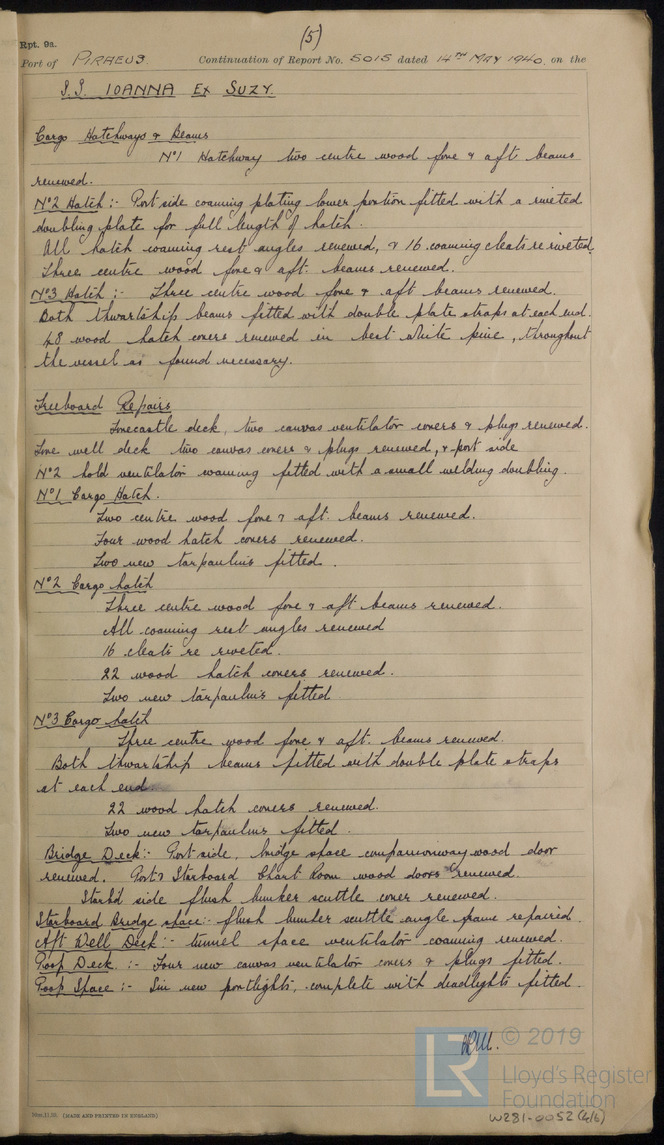 (5)
Rpt. 9a.
Port of PIRAEUS. Continuation of Report No. 5015 dated 14TH MAY 1940. on the
S.S. IOANNA EX SUZY.
Cargo Hatchways & Beams
No1 Hatchway two centre wood fore & aft beams
renewed.
No2 Hatch :- Port side coaming plating lower portion fitted with a riveted
doubling plate for full length of hatch.
All hatch coaming rest angles renewed, & 16 coaming cleats re riveted.
Three centre wood fore & aft. beams renewed.
No3 Hatch :- Three centre wood fore & aft beams renewed.
Both thwartship beams fitted with double plate straps at each end.
48 wood hatch covers renewed in best white pine, throughout
the vessel as found necessary.
Freeboard Repairs
Forecastle deck, two canvas ventilator covers & plugs renewed.
Fore well deck two canvas covers & plugs renewed, & port side
No2 hold ventilator coaming fitted with a small welding doubling.
No1 Cargo Hatch.
Two centre wood fore & aft. beams renewed.
Four wood hatch covers renewed.
Two new tarpaulins fitted.
No2 Cargo hatch
Three centre wood fore & aft beams renewed.
All coaming rest angles renewed
16 cleats re riveted.
22 wood hatch covers renewed.
Two new tarpaulins fitted
No3 Cargo hatch
Three centre wood fore & aft. beams renewed.
Both thwartship beams fitted with double plate straps
at each end
22 wood hatch covers renewed.
Two new tarpaulins fitted.
Bridge Deck:- Port side, bridge space companionway wood door
renewed. Port & Starboard Chart Room wood doors renewed.
Starb'd side flush bunker scuttle cover renewed.
Starboard Bridge space:- flush bunker scuttle angle frame repaired.
Aft Well Deck :- tunnel space ventilator coaming renewed.
Poop Deck :- Four new canvas ventilator covers & plugs fitted.
Poop Space :- Six new portlights, complete with deadlights fitted.
© 2019
LR
Lloyd's Register
Foundation
W281-0052 (4/6)
(MADE AND PRINTED IN ENGLAND)